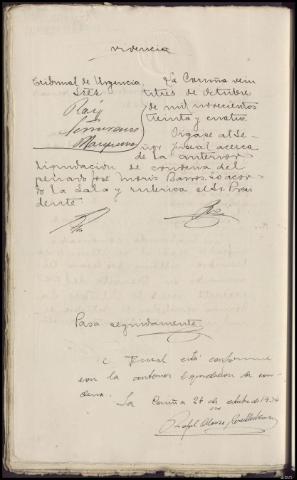 Providencia
Tribunal de Urgencia
Sres
La Coruña vein
titres de octubre
de mil novecientos
treinta y cuatro
Oigase al Se-
ñor fiscal acerca
de la anterior
liquidacion de condena del
penado José Barros. Lo acor-
do la Sala y rubrica el Sr. Presi
dente
Pasa seguidamente
El Fiscal está conforme
con la anterior liquidacion de con
dena.
La Coruña 26 de octubre de 1934